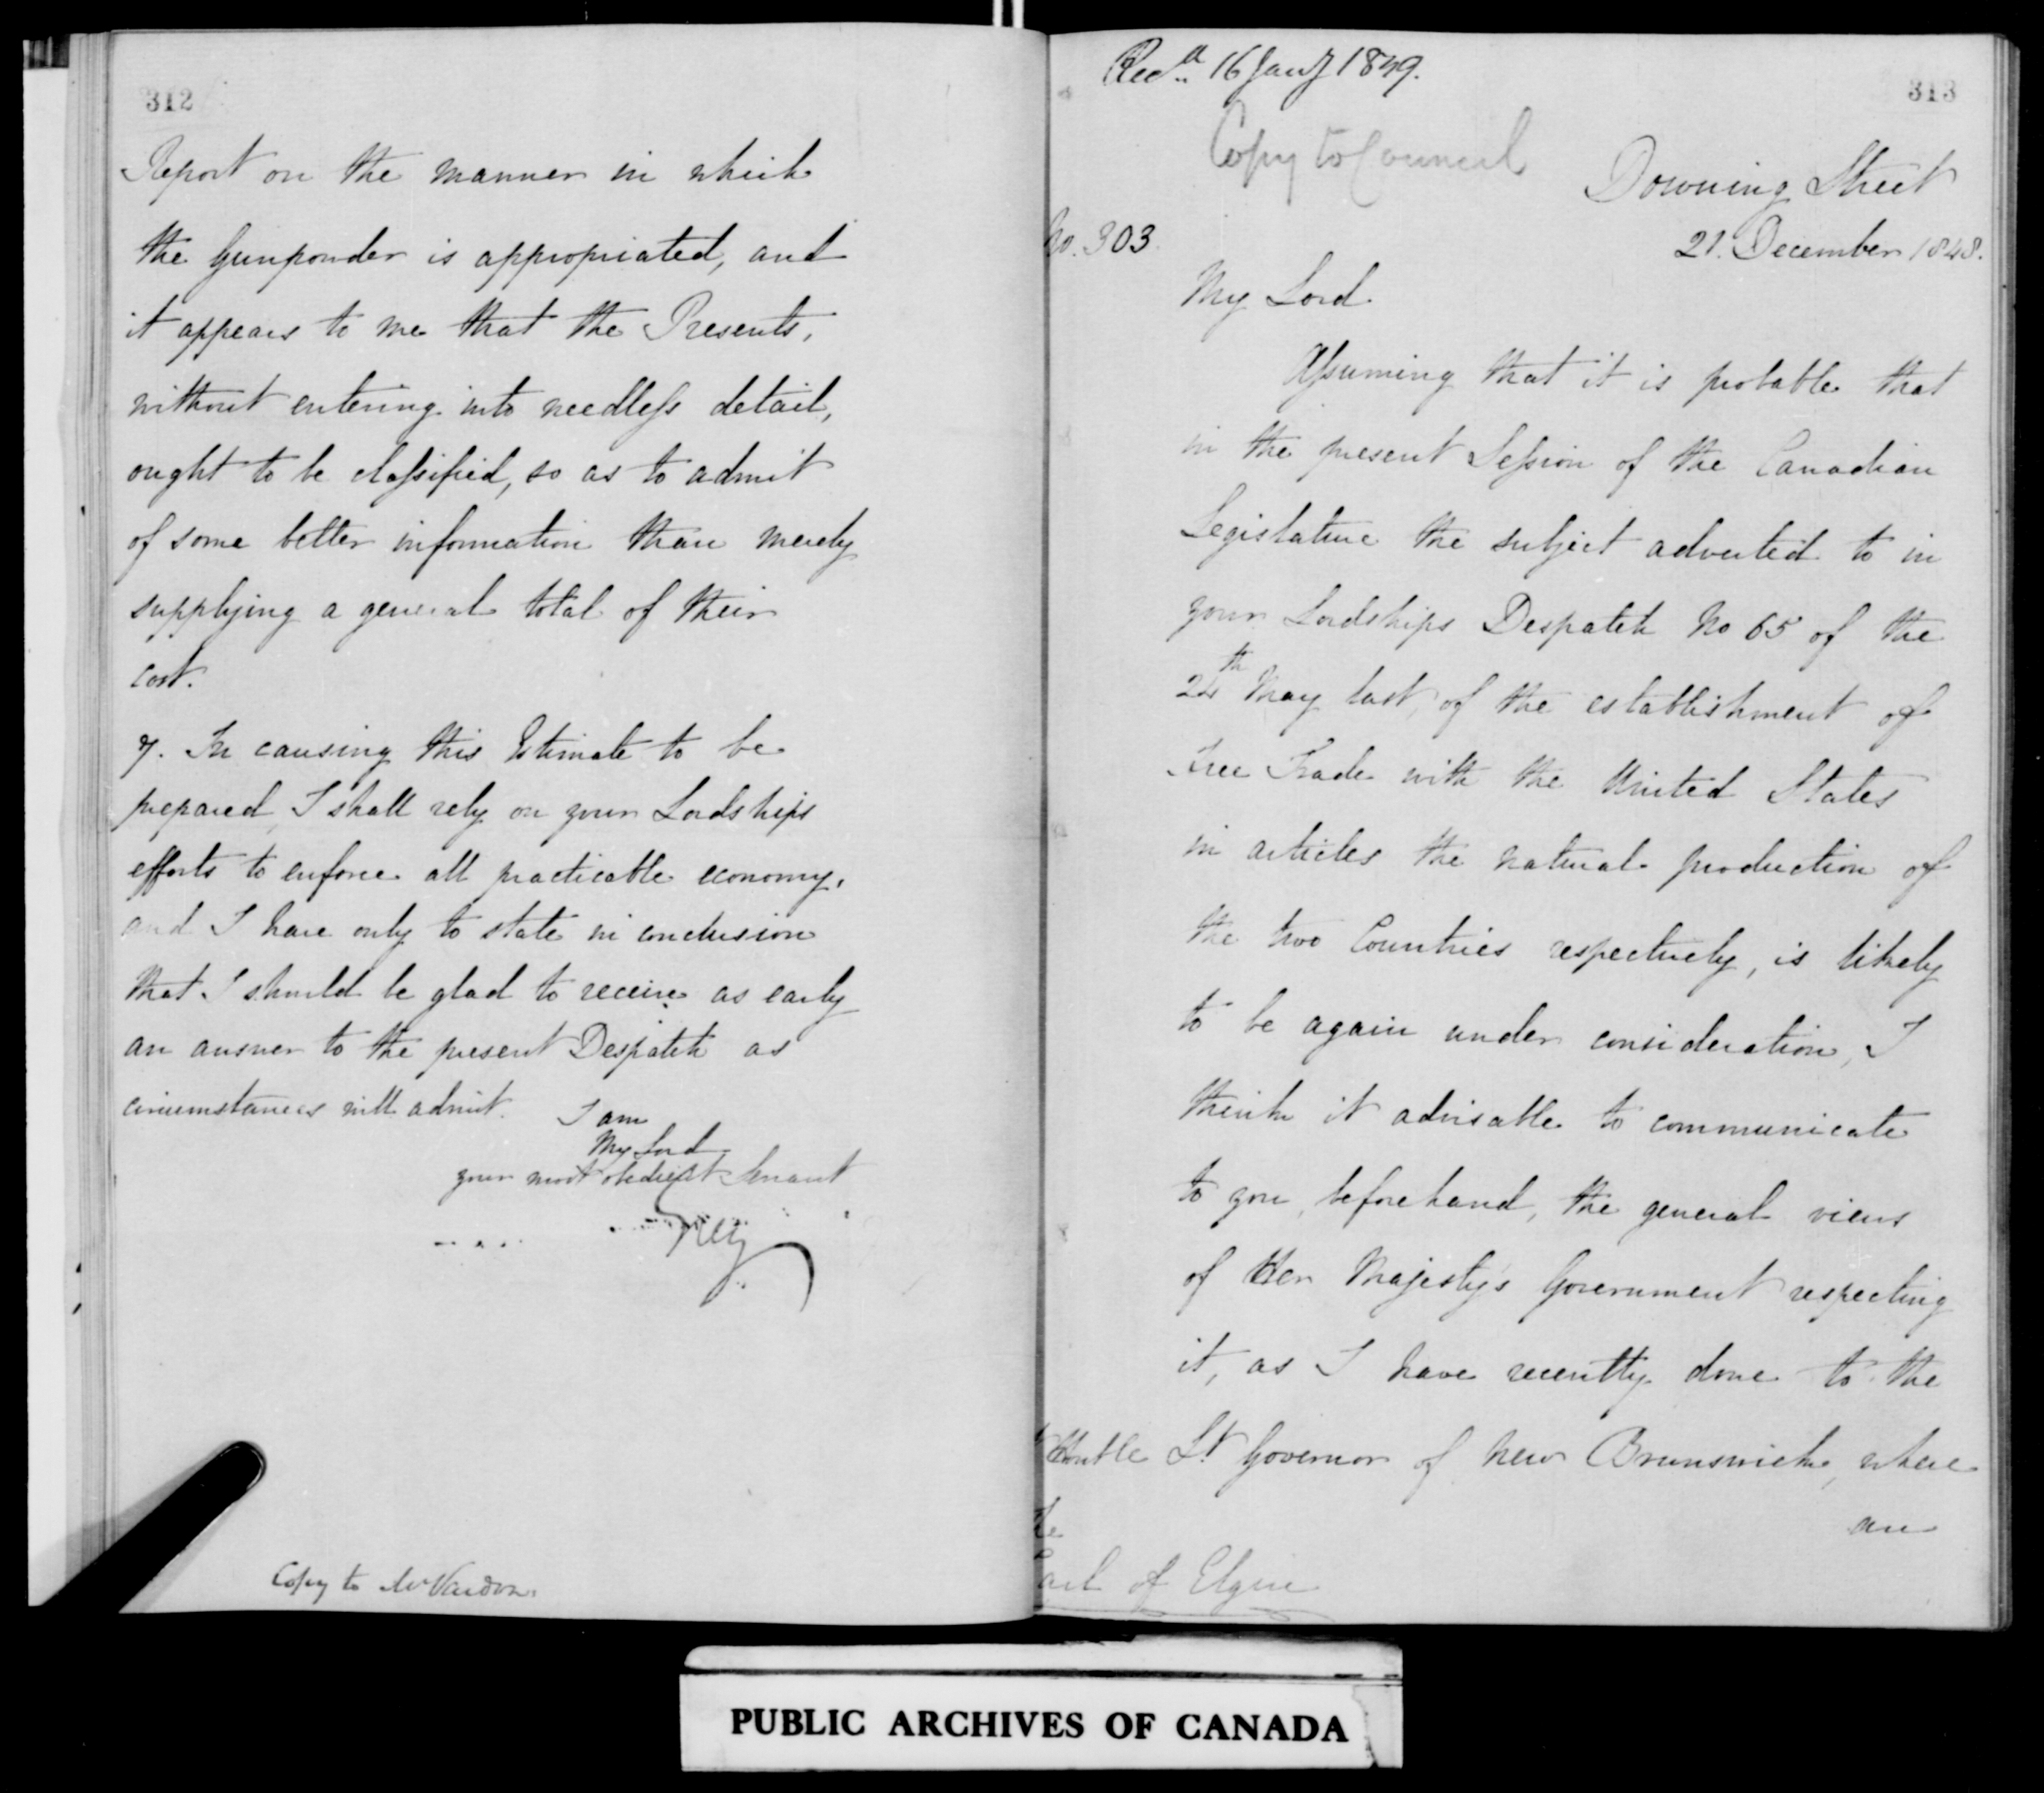 312
Report on the manner in which
the Gunpowder is appropriated, and
it appears to me that the Presents,
without entering into needless detail,
ought to be classified, so as to admit
of some better information than merely
supplying a general total of their
cost.
7. In causing this Estimate to be
prepared, I shall rely on your Lordships
efforts to enforce all practicable economy,
and I have only to state in conclusion
that I should be glad to receive as early
an answer to the present Despatch as
circumstances will admit.
I am
My Lord
your most obedient Servant
Grey
Copy to Mr Vardon
Recd. 16 Jany 1849.
313
Copy to Council
Downing Street
No. 303.
21. December 1848.
My Lord.
Assuming that it is probable that
in the present Session of the Canadian
Legislature the subject adverted to in
your Lordships Despatch No 65 of the
24th May last, of the establishment of
Free Trade with the United States
in articles the natural production of
the two Countries respectively, is likely
to be again under consideration, I
think it advisable to communicate
to you, beforehand, the general views
of Her Majesty's Government respecting
it, as I have recently done to the
Lt Governor of New Brunswick, where
an
Honble
The
Earl of Elgin
PUBLIC ARCHIVES OF CANADA